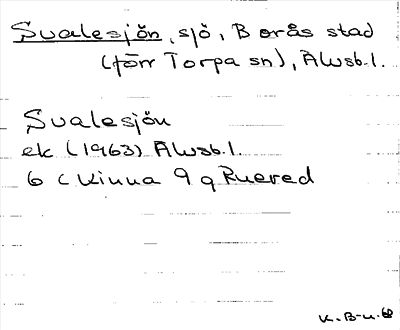 Svalesjön, sjö, Borås stad
(förr Torpa sn), Älvsb.l.
Svalesjön
ek (1963) Älvsb.l.
6 C Kinna 9 g Rävered
K.B-u.68